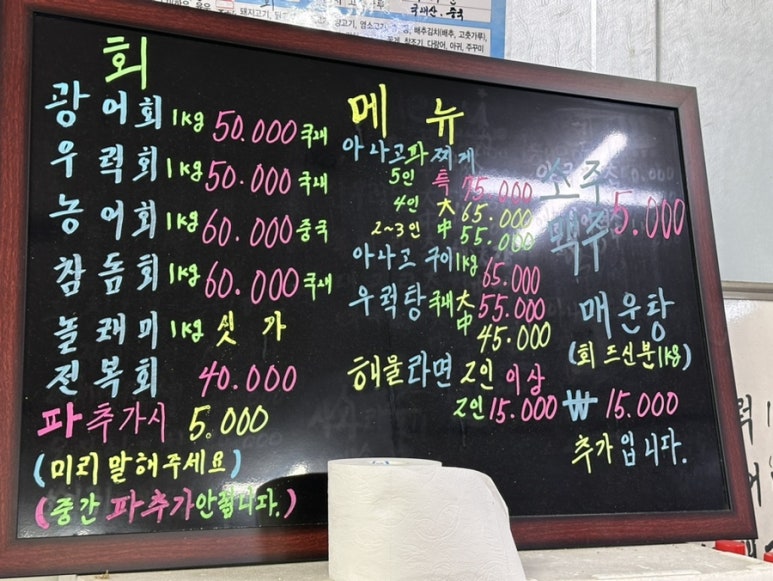 국내산. 중국
회
광어회 1kg 50.000 국내
우럭회 1kg 50.000 국내
농어회 1kg 60.000 중국
참돔회 1kg 60.000 국내
놀래미 1kg 싯가
전복회 40.000
파추가시 5.000
(미리 말해주세요)
(중간 파추가안됩니다.)
메뉴
아나고파찌게
5인 특 75.000
4인 大 65.000
2~3인 中 55.000
아나고 구이 1kg 65.000
우럭탕 국내 大 55.000
中 45.000
해물라면 2인 이상
2인 15.000
소주
맥주 5.000
매운탕
(회 드신분 1kg)
₩ 15.000
추가입니다.